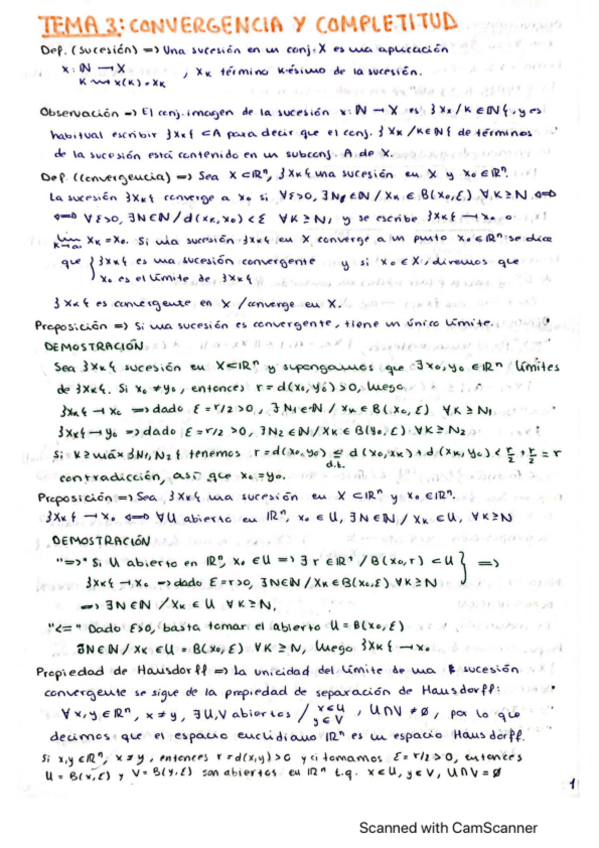 TEMA 3: CONVERGENCIA Y COMPLETITUD
Def. (Sucesión) => Una sucesión en un conj. X es una aplicación
x: ℕ → X
k ⟿ x(k) = xₖ , xₖ término k-ésimo de la sucesión.
Observación => El conj. imagen de la sucesión x: ℕ → X es {xₖ / k ∈ ℕ}, y es
habitual escribir {xₖ} ⊂ A para decir que el conj. {xₖ / k ∈ ℕ} de términos
de la sucesión está contenido en un subconj. A de X.
Def. (Convergencia) => Sea X ⊂ ℝⁿ, {xₖ} una sucesión en X y x₀ ∈ ℝⁿ.
La sucesión {xₖ} converge a x₀ si ∀ε>0, ∃N ∈ ℕ / xₖ ∈ B(x₀,ε) ∀k ≥ N <=>
<=> ∀ε>0, ∃N ∈ ℕ / d(xₖ,x₀) < ε ∀k ≥ N, y se escribe {xₖ} → x₀ o
lim xₖ = x₀. Si una sucesión {xₖ} en X converge a un punto x₀ ∈ ℝⁿ se dice
k→∞
que { {xₖ} es una sucesión convergente y si x₀ ∈ X, diremos que
x₀ es el límite de {xₖ}
{xₖ} es convergente en X / converge en X.
Proposición => Si una sucesión es convergente, tiene un único límite.
DEMOSTRACIÓN
Sea {xₖ} sucesión en X ⊂ ℝⁿ y supongamos que ∃x₀, y₀ ∈ ℝⁿ límites
de {xₖ}. Si x₀ ≠ y₀, entonces r = d(x₀,y₀) > 0, luego
{xₖ} → x₀ => dado ε = r/2 > 0, ∃N₁ ∈ ℕ / xₖ ∈ B(x₀,ε) ∀k ≥ N₁
{xₖ} → y₀ => dado ε = r/2 > 0, ∃N₂ ∈ ℕ / xₖ ∈ B(y₀,ε) ∀k ≥ N₂
Si k ≥ máx{N₁,N₂} tenemos r = d(x₀,y₀) ≤ d(x₀,xₖ) + d(xₖ,y₀) < r/2 + r/2 = r
d.t.
contradicción, así que x₀ = y₀.
Proposición => Sea {xₖ} una sucesión en X ⊂ ℝⁿ y x₀ ∈ ℝⁿ.
{xₖ} → x₀ <=> ∀U abierto en ℝⁿ, x₀ ∈ U, ∃N ∈ ℕ / xₖ ⊂ U, ∀k ≥ N
DEMOSTRACIÓN
"=>" Si U abierto en ℝⁿ, x₀ ∈ U => ∃r ∈ ℝ⁺ / B(x₀,r) ⊂ U } =>
{xₖ} → x₀ => dado ε = r > 0, ∃N ∈ ℕ / xₖ ∈ B(x₀,ε) ∀k ≥ N
=> ∃N ∈ ℕ / xₖ ∈ U ∀k ≥ N.
"<=" Dado ε>0, basta tomar el abierto U = B(x₀,ε)
∃N ∈ ℕ / xₖ ∈ U = B(x₀,ε) ∀k ≥ N, luego {xₖ} → x₀.
Propiedad de Hausdorff => La unicidad del límite de una sucesión
convergente se sigue de la propiedad de separación de Hausdorff:
∀x,y ∈ ℝⁿ, x ≠ y, ∃U,V abiertos / x ∈ U y ∈ V, U∩V ≠ ∅, por lo que
decimos que el espacio euclidiano ℝⁿ es un espacio Hausdorff.
Si x,y ∈ ℝⁿ, x ≠ y, entonces r = d(x,y) > 0 y si tomamos ε = r/2 > 0, entonces
U = B(x,ε) y V = B(y,ε) son abiertos en ℝⁿ t.q. x ∈ U, y ∈ V, U∩V = ∅
1
Scanned with CamScanner